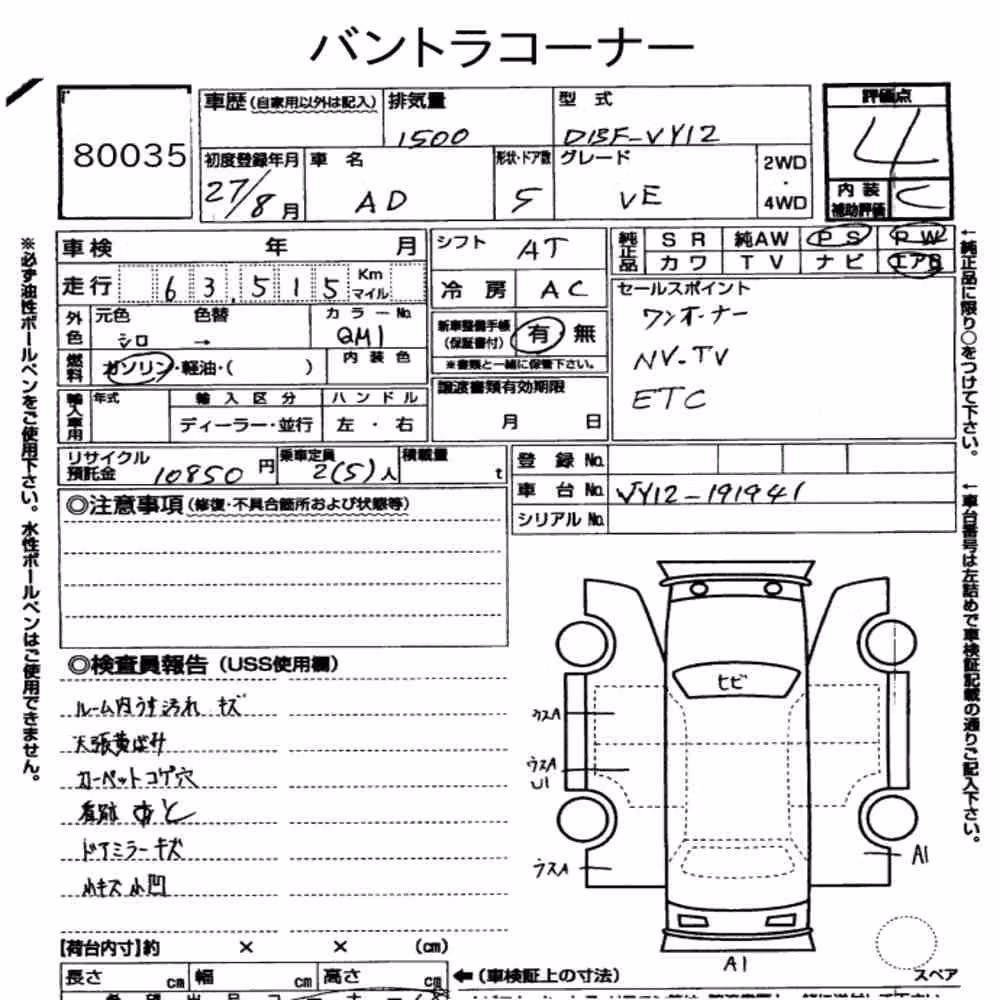 バントラコーナー
80035
車歴(自家用以外は記入) 排気量 1500
型式 DBF-VY12
評価点 4
初度登録年月 27/8月
車名 AD
形状・ドア数 5
グレード VE
2WD・4WD
内装補助評価 C
車検 年 月
シフト AT
純正品 SR 純AW PS PW
カワ TV ナビ エアB
走行 63,515 Km マイル
冷房 AC
セールスポイント
ワンオーナー
NV-TV
ETC
外色 元色 シロ → 色替 カラーNo. QM1
新車整備手帳(保証書付) 有 無
※書類と一緒に保管下さい。
燃料 ガソリン・軽油・( ) 内装色
譲渡書類有効期限
月 日
輸入車用 年式 輸入区分 ハンドル
ディーラー・並行 左・右
リサイクル預託金 10850円 乗車定員 2(5)人 積載量 t
登録No.
車台No. VY12-191941
シリアルNo.
◎注意事項(修復・不具合箇所および状態等)
◎検査員報告(USS使用欄)
ルーム内うす汚れ キズ
天張黄ばみ
カーペットコゲ穴
看跡 あと
ドアミラーキズ
小キズ小凹
ヒビ
ウスA
ウスA
U1
ウスA
A1
A1
スペア
【荷台内寸】約 × × (cm)
長さ cm 幅 cm 高さ cm ←(車検証上の寸法)
※必ず油性ボールペンをご使用下さい。水性ボールペンはご使用できません。
←純正品に限り○をつけて下さい。
←車台番号は左詰めで車検証記載の通りご記入下さい。